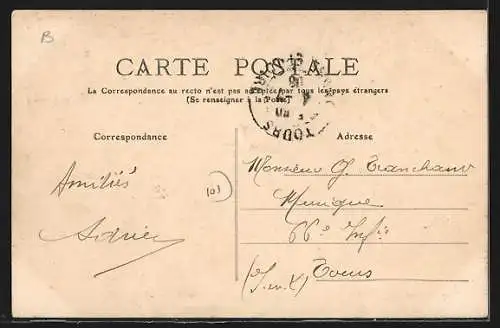 B
CARTE POSTALE
La Correspondance au recto n'est pas acceptée par tous les pays étrangers
(Se renseigner à la Poste)
Correspondance
Adresse
TOURS
Amitiés
101
Monsieur G. Tranchant
Musique
66e Inf ie
(I. et L) Tours